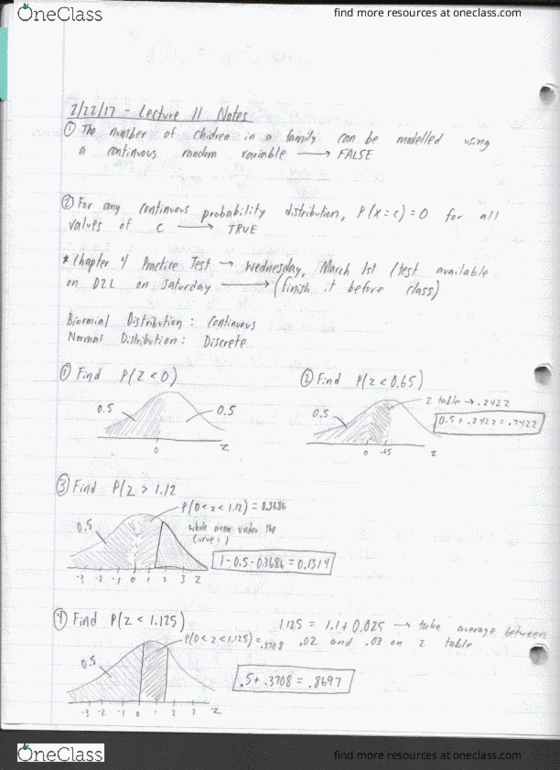 OneClass
find more resources at oneclass.com
2/22/17 - Lecture 11 Notes
① The number of chidren in a family can be modelled using
a continuous random variable → FALSE
② For any continuous probability distribution, P(x=c)=0 for all
values of c → TRUE
* Chapter 4 Practice Test → Wednesday, March 1st (test available
on D2L on Saturday → (finish it before class)
Binomial Distribution: Continuous
Normal Distribution: Discrete
① Find P(Z<0)
0.5 0.5
0 Z
② Find P(Z<0.65)
Z table → .2422
0.5
0.5+.2422=.7422
0 .65 Z
③ Find P(Z > 1.12
P(0<Z<1.12)=0.3686
0.5
whole area under the
curve=1
1-0.5-0.3686=0.1314
-3 -2 -1 0 1 2 3 Z
④ Find P(Z < 1.125)
1.125 = 1.1+0.025 → take average between
.02 and .03 on Z table
P(0<Z<1.125)=.3708
0.5
.5+.3708=.8697
-3 -2 -1 0 1 2 3 Z
OneClass
find more resources at oneclass.com